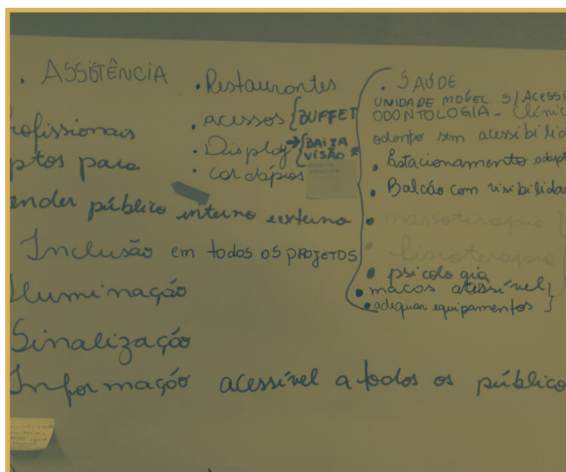 . ASSISTÊNCIA
rofissionais
ptos para
ender público interno externo
Inclusão em todos os PROJETOS
Iluminação
Sinalização
Informação acessível a todos os público
• Restaurantes
• acessos { BUFFET
• Display → { BAIXA VISÃO *
• cardápios
. SAÚDE
UNIDADE MÓVEL S/ ACESSI
ODONTOLOGIA - Clínic
odonto sem acessibilid
• Estacionamento adapt
• Balcão com visibilidad
• massoterapia }
• fisioterapia }
• psicologia
• macas acessível }
• adequar equipamentos }